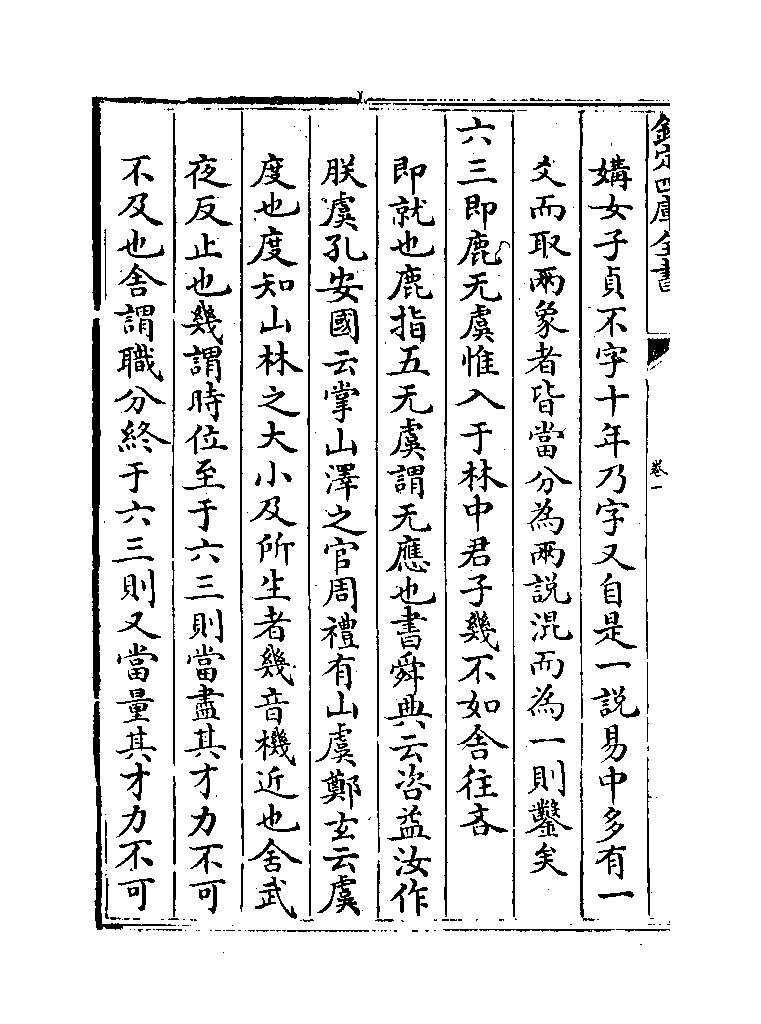 欽定四庫全書
卷一
媾女子貞不字十年乃字又自是一説易中多有一
爻而取兩象者皆當分為兩説混而為一則鑿矣
六三即鹿无虞惟入于林中君子幾不如舍往吝
即就也鹿指五无虞謂无應也書舜典云咨益汝作
朕虞孔安國云掌山澤之官周禮有山虞鄭玄云虞
度也度知山林之大小及所生者幾音機近也舍武
夜反止也幾謂時位至于六三則當盡其才力不可
不及也舍謂職分終于六三則又當量其才力不可